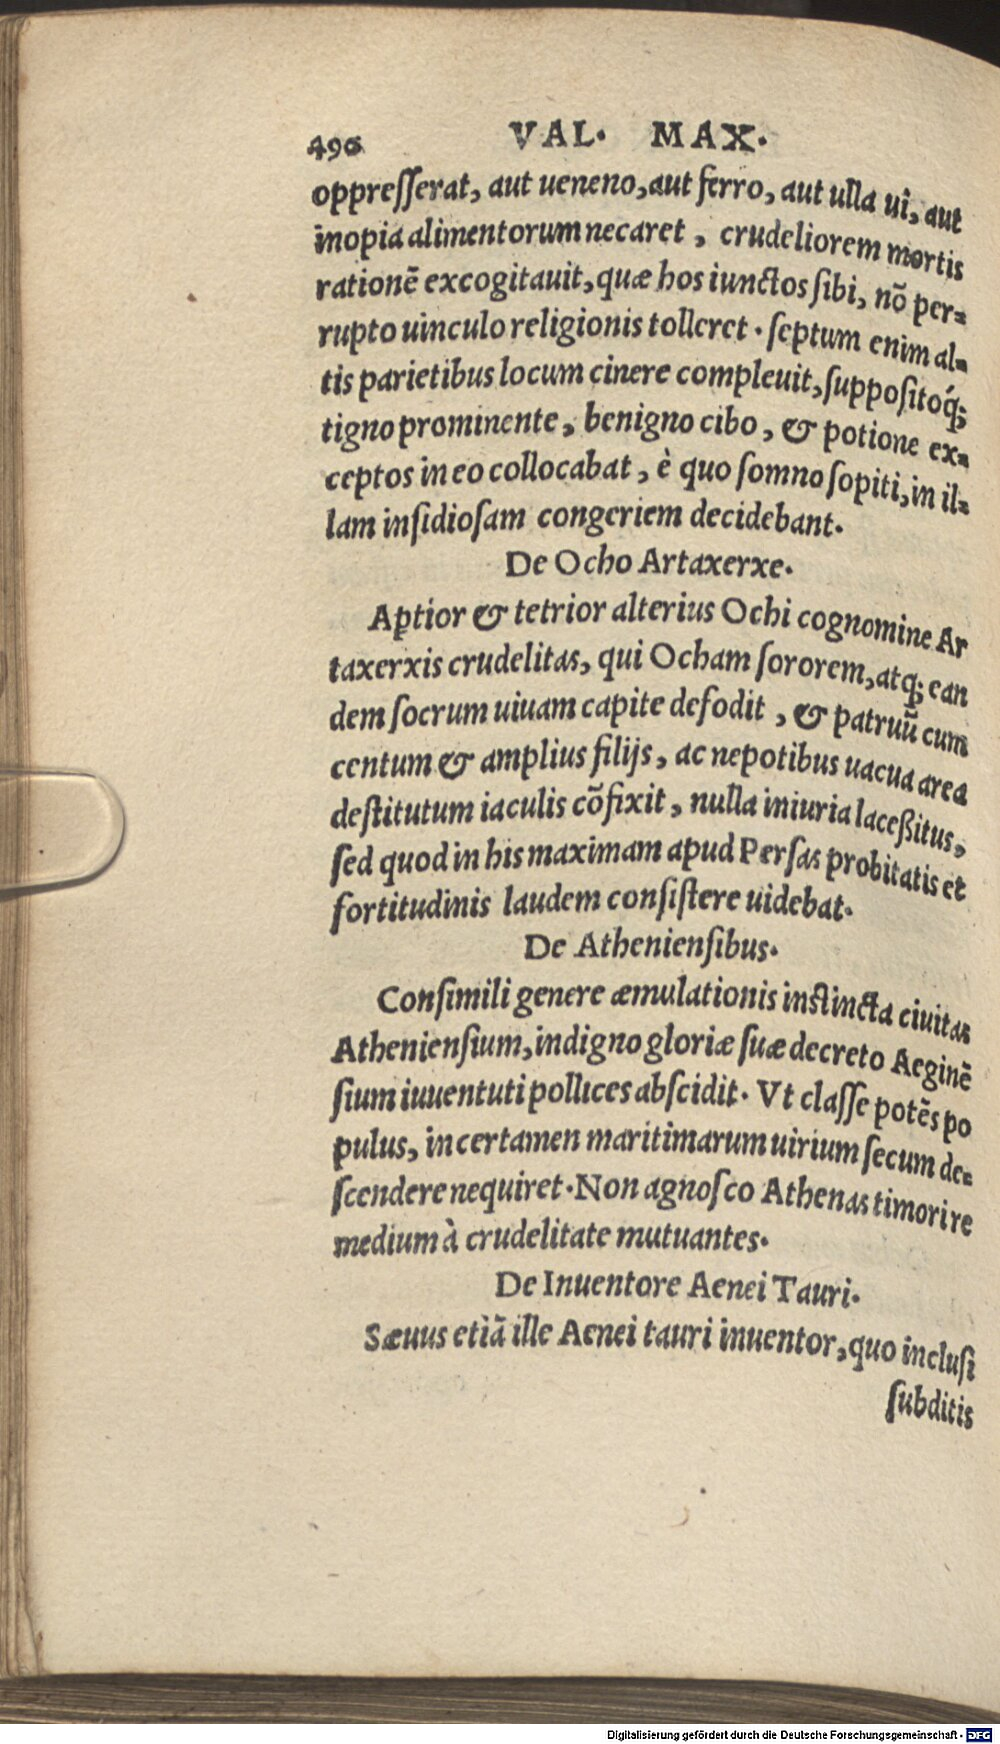 490 VAL. MAX.
oppreſſerat, aut ueneno, aut ferro, aut ulla ui, aut
inopia alimentorum necaret, crudeliorem mortis
rationē excogitauit, quæ hos iunctos ſibi, nō per-
rupto uinculo religionis tolleret. ſeptum enim al-
tis parietibus locum cinere compleuit, ſuppoſitoq́;
tigno prominente, benigno cibo, & potione ex-
ceptos in eo collocabat, è quo ſomno ſopiti, in il-
lam inſidioſam congeriem decidebant.
De Ocho Artaxerxe.
Aptior & tetrior alterius Ochi cognomine Ar
taxerxis crudelitas, qui Ocham ſororem, atq; ean
dem ſocrum uiuam capite defodit, & patruū cum
centum & amplius filijs, ac nepotibus uacua area
deſtitutum iaculis cōfixit, nulla iniuria laceßitus,
ſed quod in his maximam apud Perſas probitatis et
fortitudinis laudem conſiſtere uidebat.
De Athenienſibus.
Conſimili genere æmulationis inſtincta ciuitas
Athenienſium, indigno gloriæ ſuæ decreto Aeginē
ſium iuuentuti pollices abſcidit. Vt claſſe potēs po
pulus, in certamen maritimarum uirium ſecum de-
ſcendere nequiret. Non agnoſco Athenas timori re
medium à crudelitate mutuantes.
De Inuentore Aenei Tauri.
Sæuus etiā ille Aenei tauri inuentor, quo incluſi
ſubditis
Digitalisierung gefördert durch die Deutsche Forschungsgemeinschaft - DFG